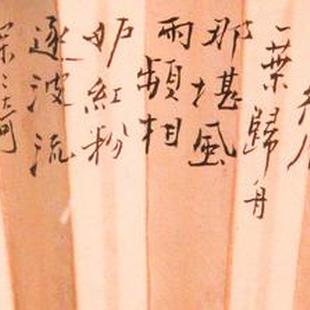 一葉歸舟
那堪風
雨頻相
妒紅粉
逐波流